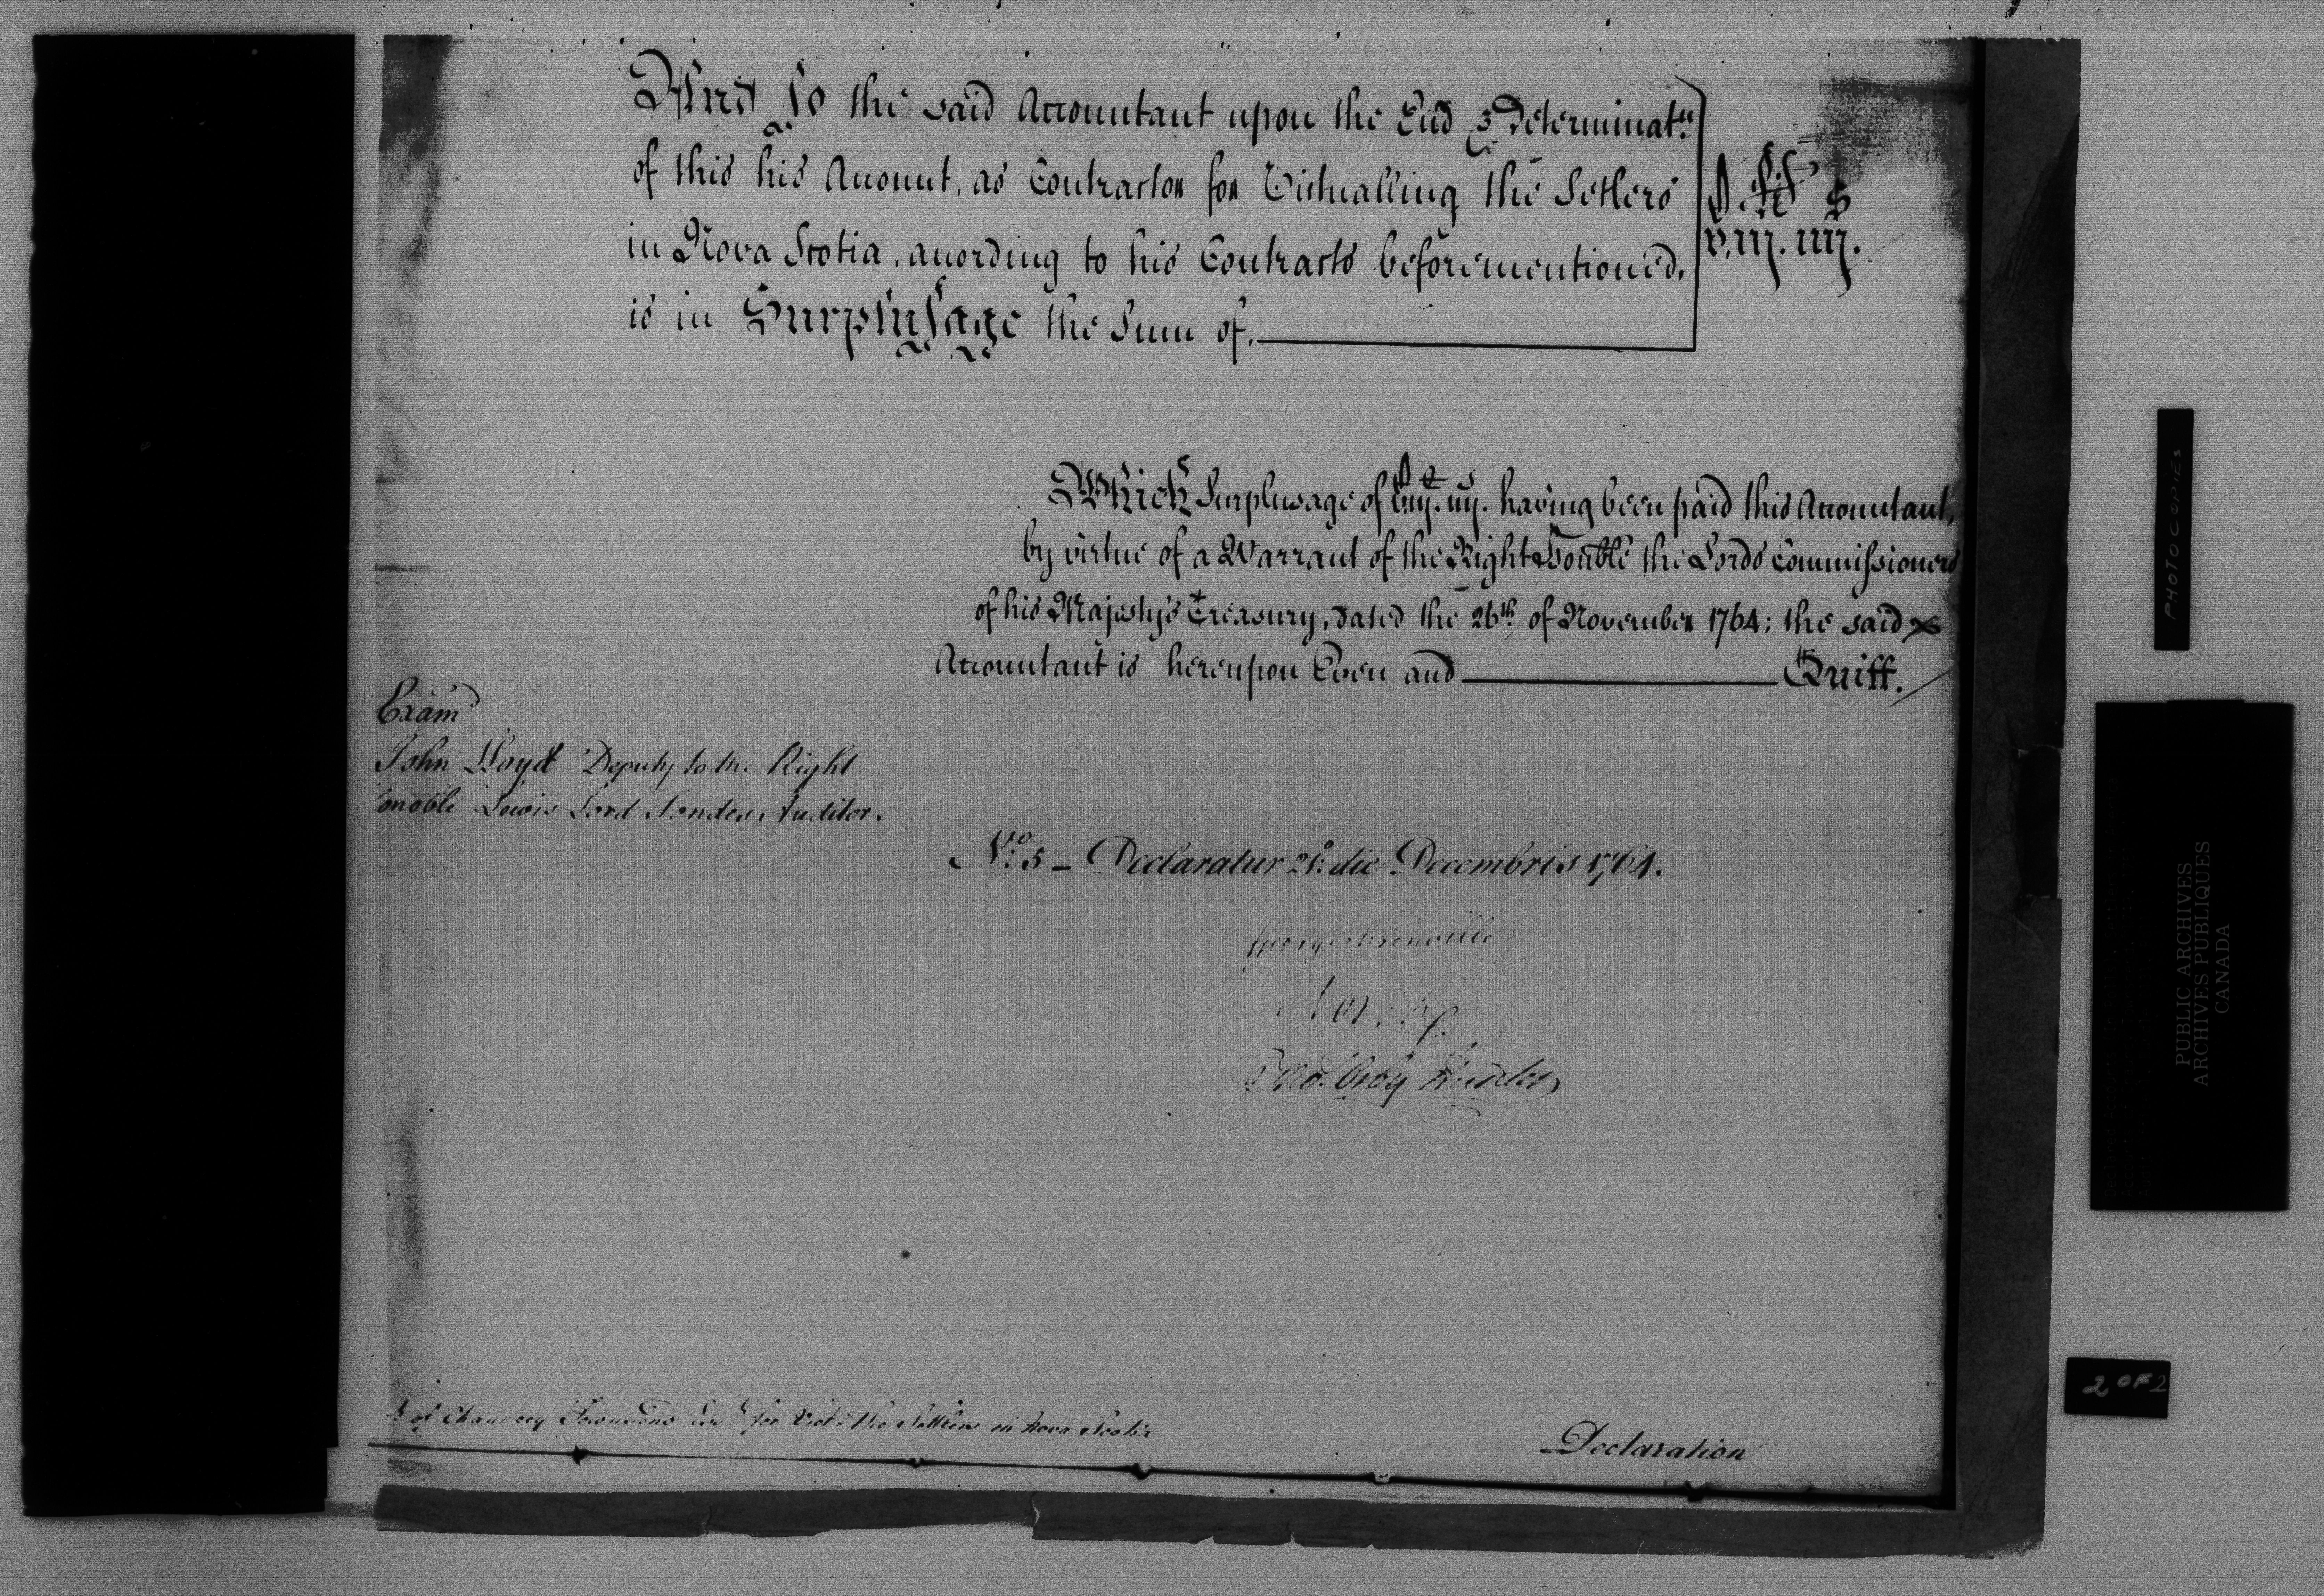 And So the said Accountant upon the End & Determinat.n
of this his Account, as Contractor for Victualling the Setlers
in Nova Scotia, according to his Contracts beforementioned,
is in Surplusage the Sum of,
v.iij. iiij.
Which Surplusage of v.iij. iiij. having been paid this Accountant,
by virtue of a Warrant of the Right Honble the Lords Commissioners
of his Majesty's Treasury, dated the 26th of November 1764; the said
Accountant is hereupon Even and Quitt.
Exam.d
John Lloyd Deputy to the Right
onoble Lewis Lord Sondes Auditor.
No. 5 - Declaratur 21o: die Decembris 1764.
George Grenville
North
Thos. Orby Hunter
of Chauncey Townsend Esqr. for Vict.g the Settlers in Nova Scotia
Declaration
PHOTOCOPIES
PUBLIC ARCHIVES
ARCHIVES PUBLIQUES
CANADA
2 OF 2